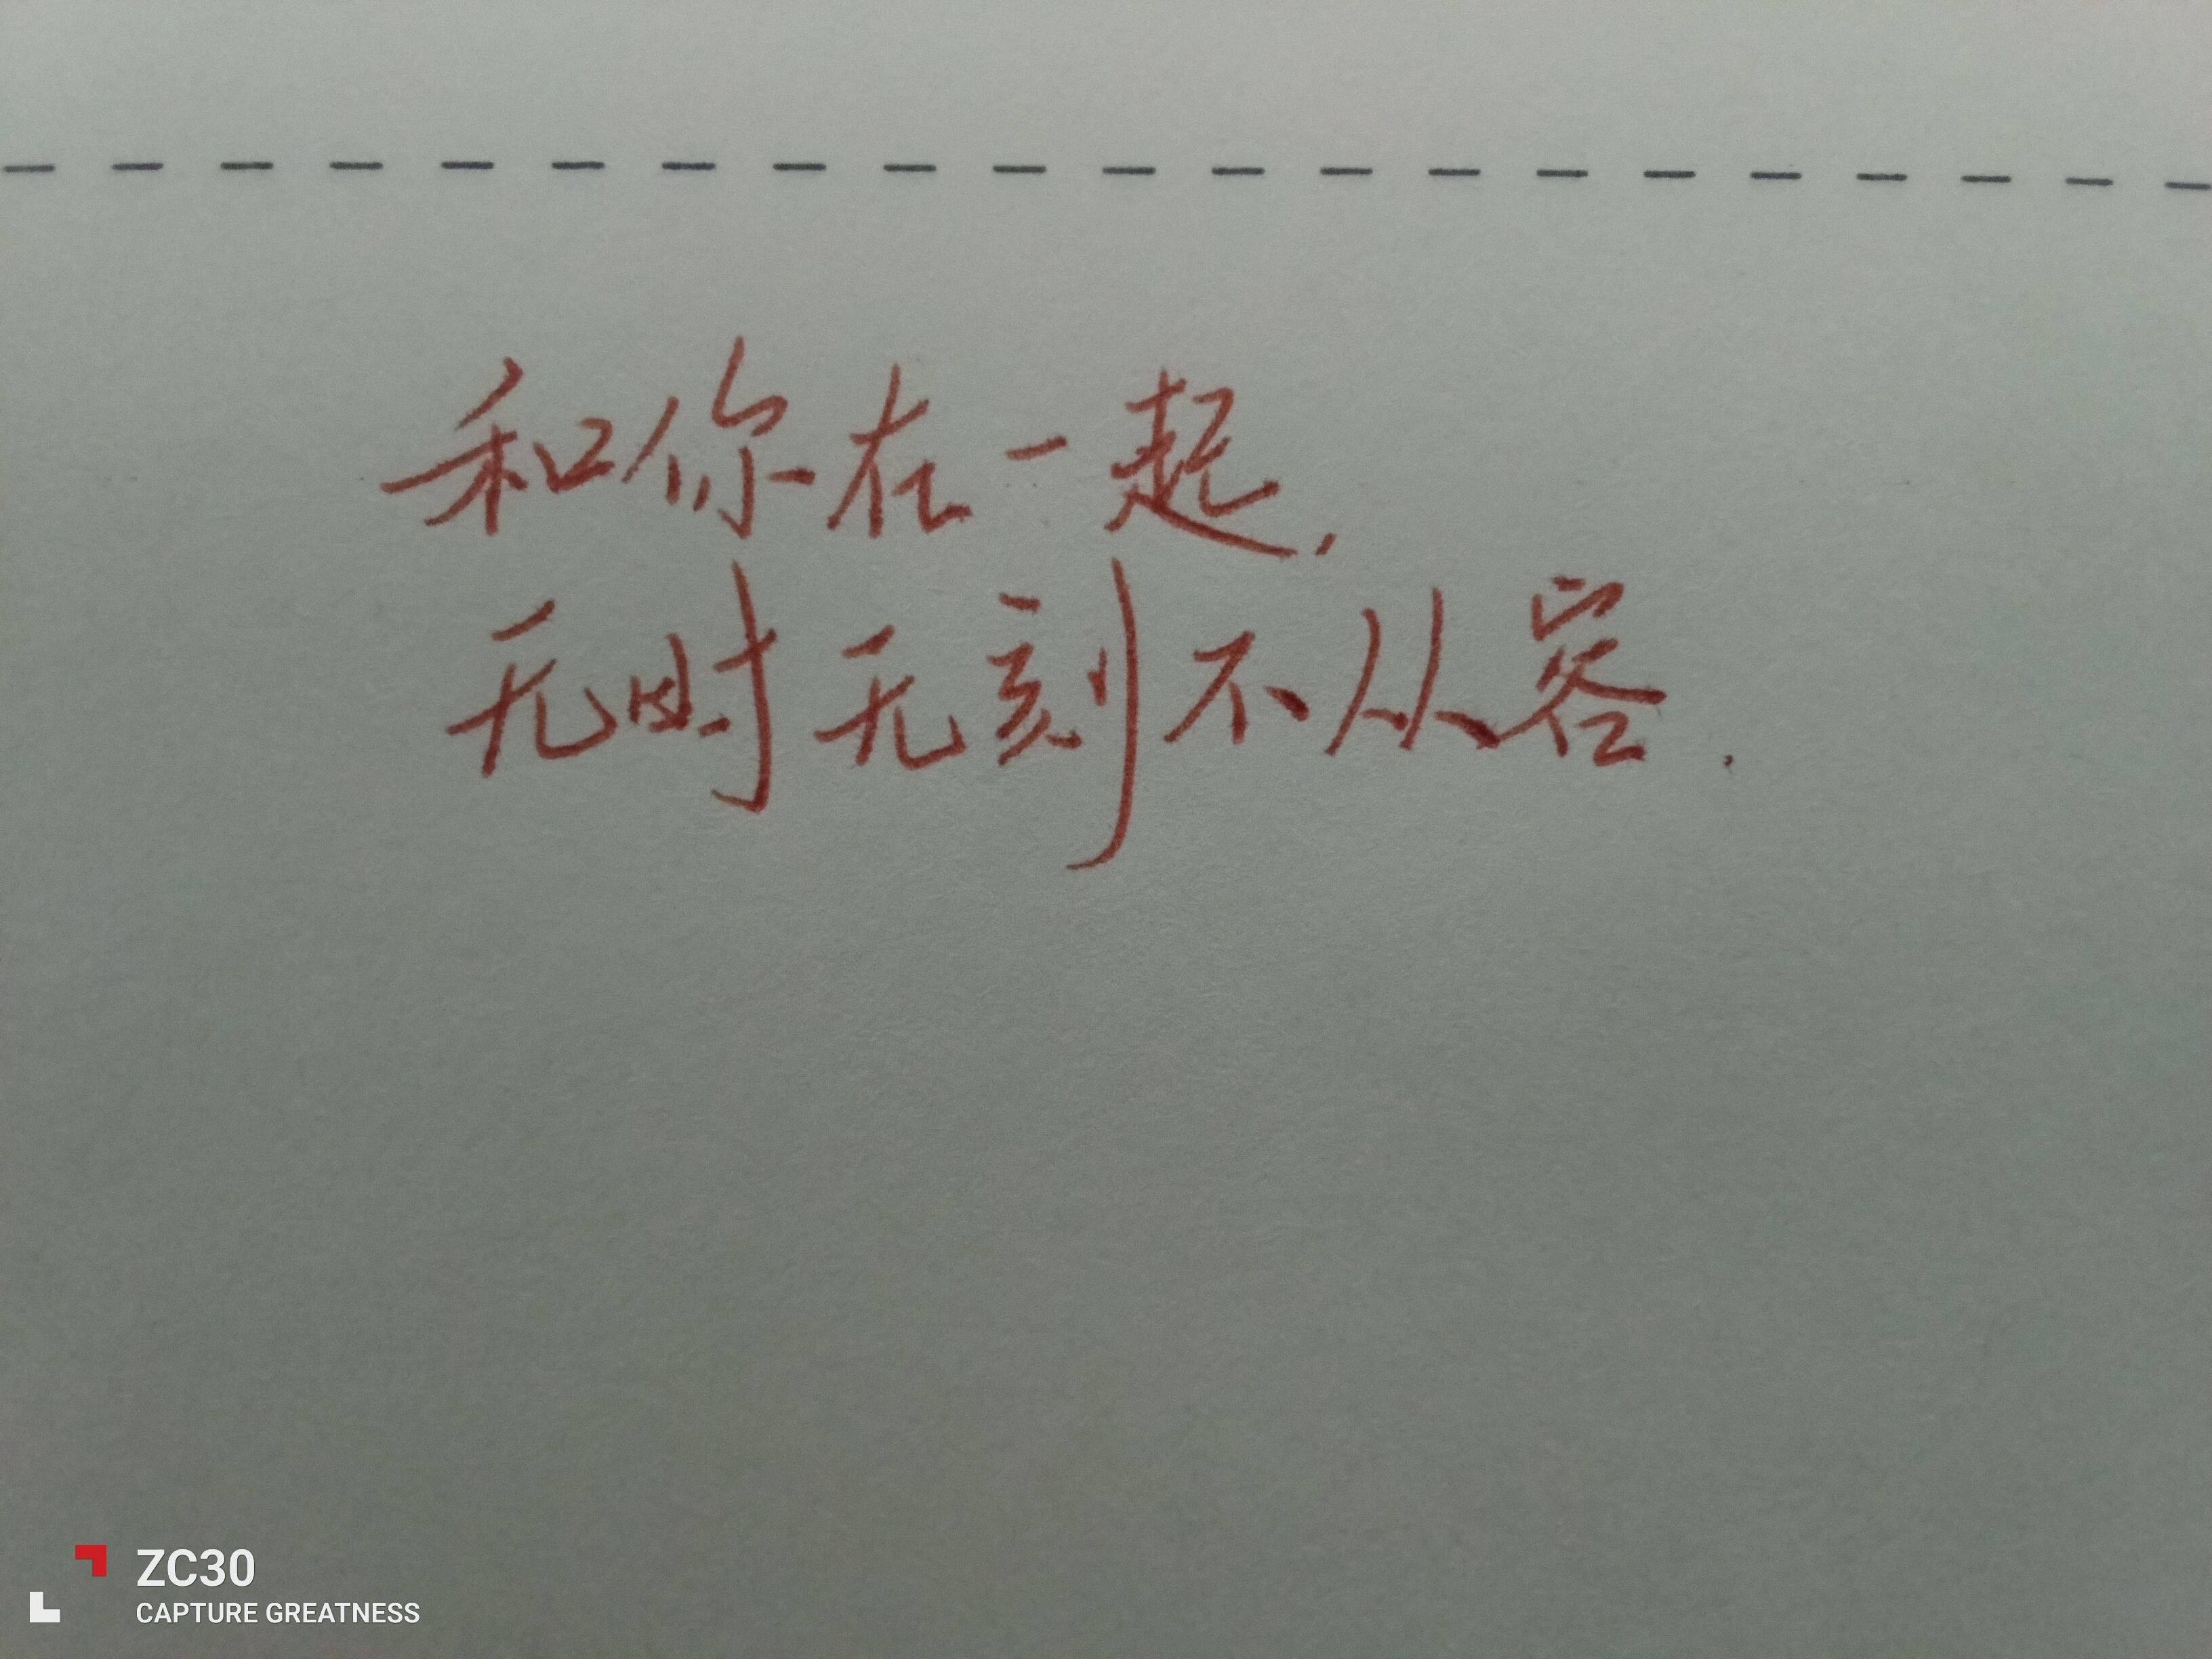 和你在一起,
无时无刻不从容.
ZC30
CAPTURE GREATNESS